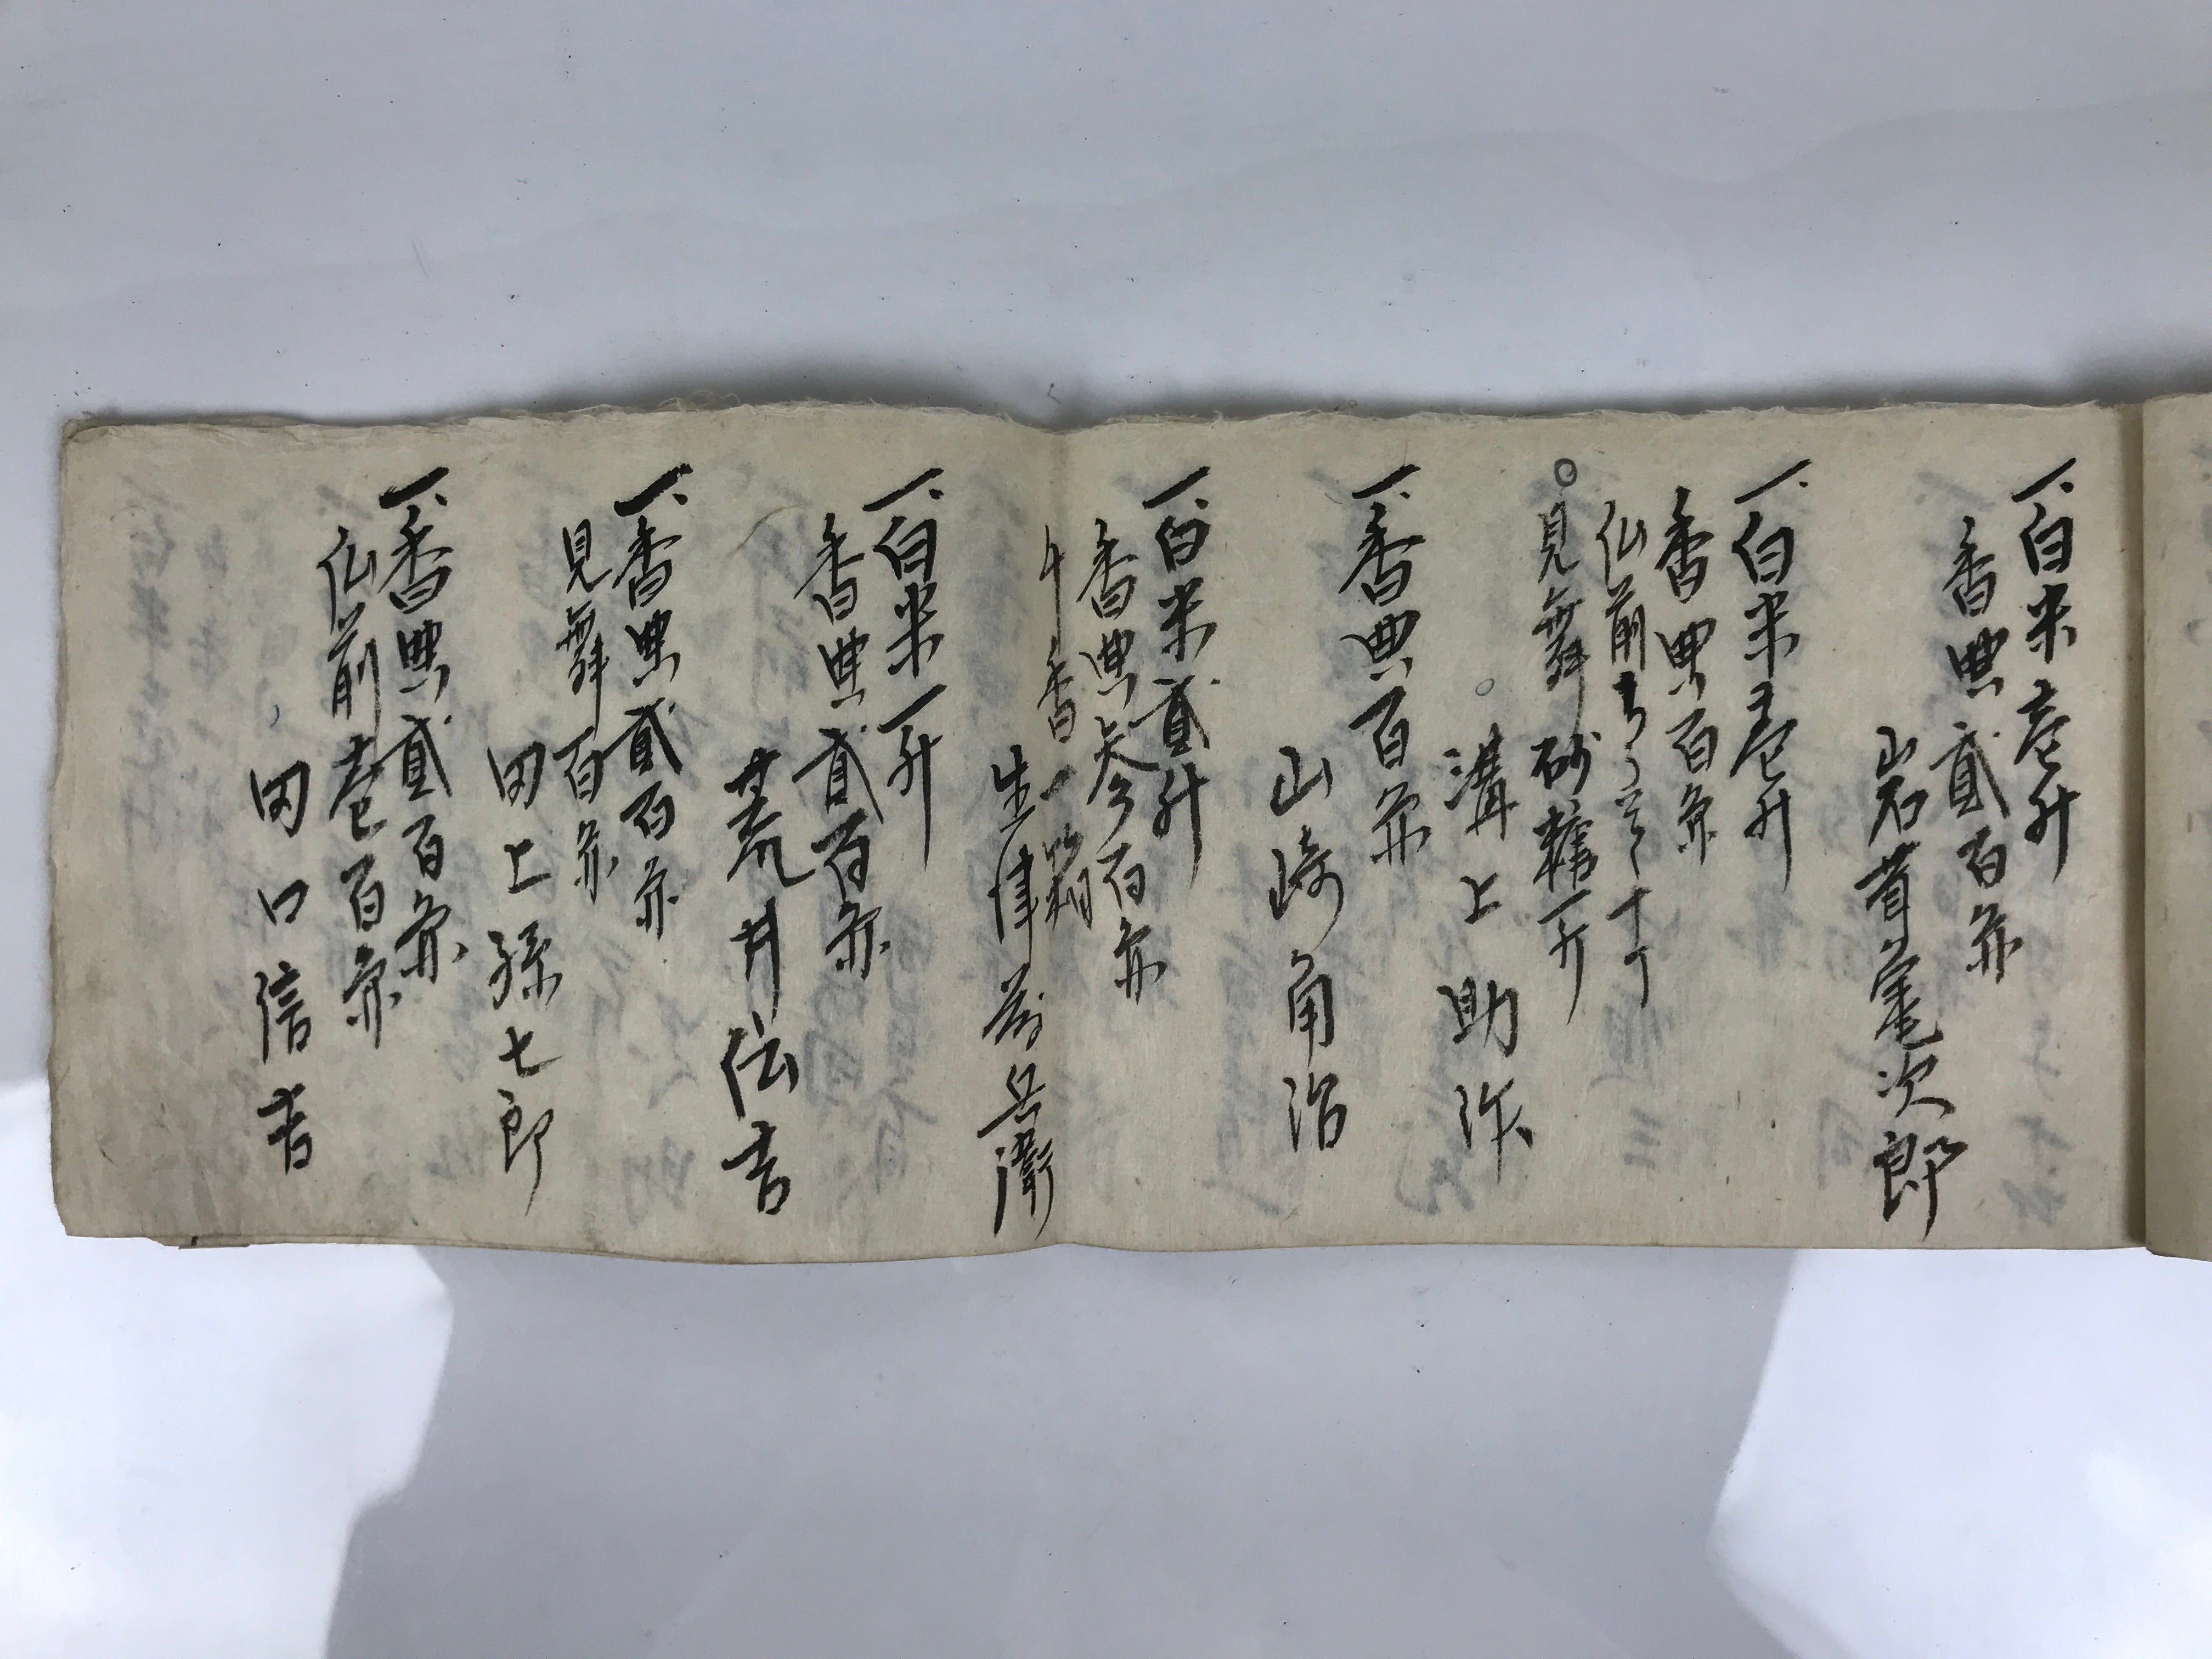 一、白米壱升
香典貳百文
岩茸竜次郎
一、白米壱升
香典百文
仏前ろうそく十丁
見舞砂糖一斤
溝上助作
一、香典百文
山崎角治
一、白米貳升
香典参百文
千香一箱
生津若兵衛
一、白米一升
香典貳百文
荒井伝吉
一、香典貳百文
見舞百文
田上孫七郎
一、香典貳百文
仏前壱百文
田口信吉